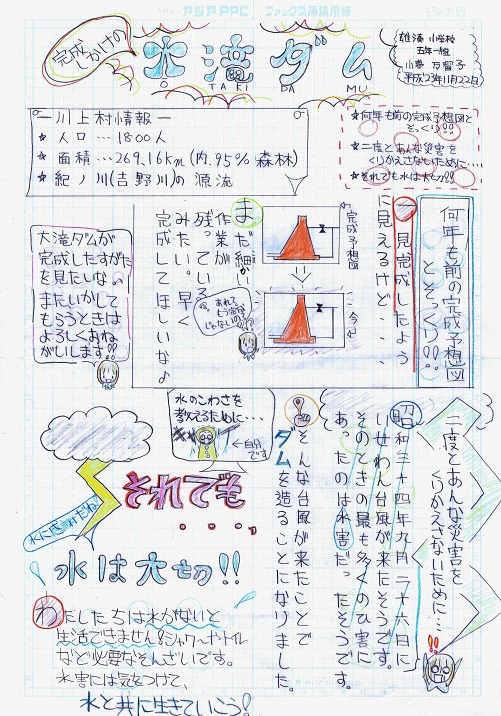 アジア PPC ファックス原稿用紙
完成しかけの
大滝ダム
O TAKI DA MU
雄湊小学校
五年一組
平成23年11月22日
ー川上村情報ー
★ 人口…1800人
★ 面積…269.16Km(内.95%森林)
★ 紀ノ川(吉野川)の源流
★何年も前の完成予想図と
そっくり!!
★二度とあんな災害を
くりかえさないために…
★それでも水は大切!!
何年も前の完成予想図
とそっくり!!
一見完成したよう
に見えるけど…
完成予想図
今
まだ細かい
作業が
残っている
みたい。早く
完成してほしいな♪
あれ?
もう完成
じゃないの?
大滝ダムが
完成したすがた
を見たいな。
またいかして
もらうときは
よろしくおね
がいします!!
二度とあんな災害を
くりかえさないために…
昭和三十四年九月二十六日に
いせわん台風が来たそうです。
そのときの最も多くのひ害に
あったのは水害だったそうです。
そんな台風が来たことで
ダムを造ることになりました。
水のこわさを
教えるために…
←自分
です
それでも
・・・・
水に感謝だね
水は大切!!
わたしたちは水がないと
生活できません!シャワーやトイレ
など必要なそんざいです。
水害には気をつけて、
水と共に生きていこう!